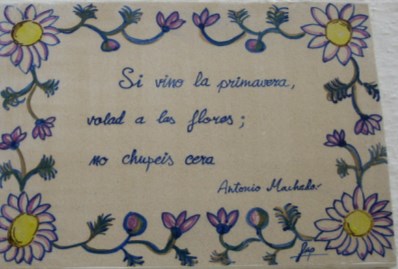 Si vino la primavera,
volad a las flores;
no chupeis cera
Antonio Machado